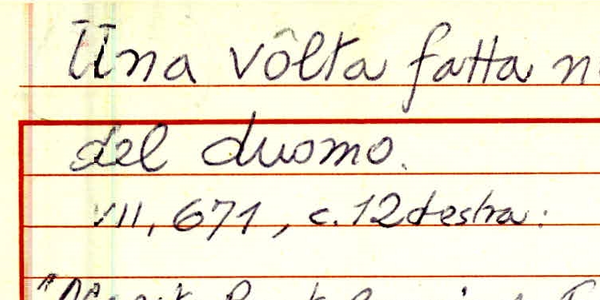 Una vôlta fatta n
del duomo.
VII, 671, c. 12 destra: